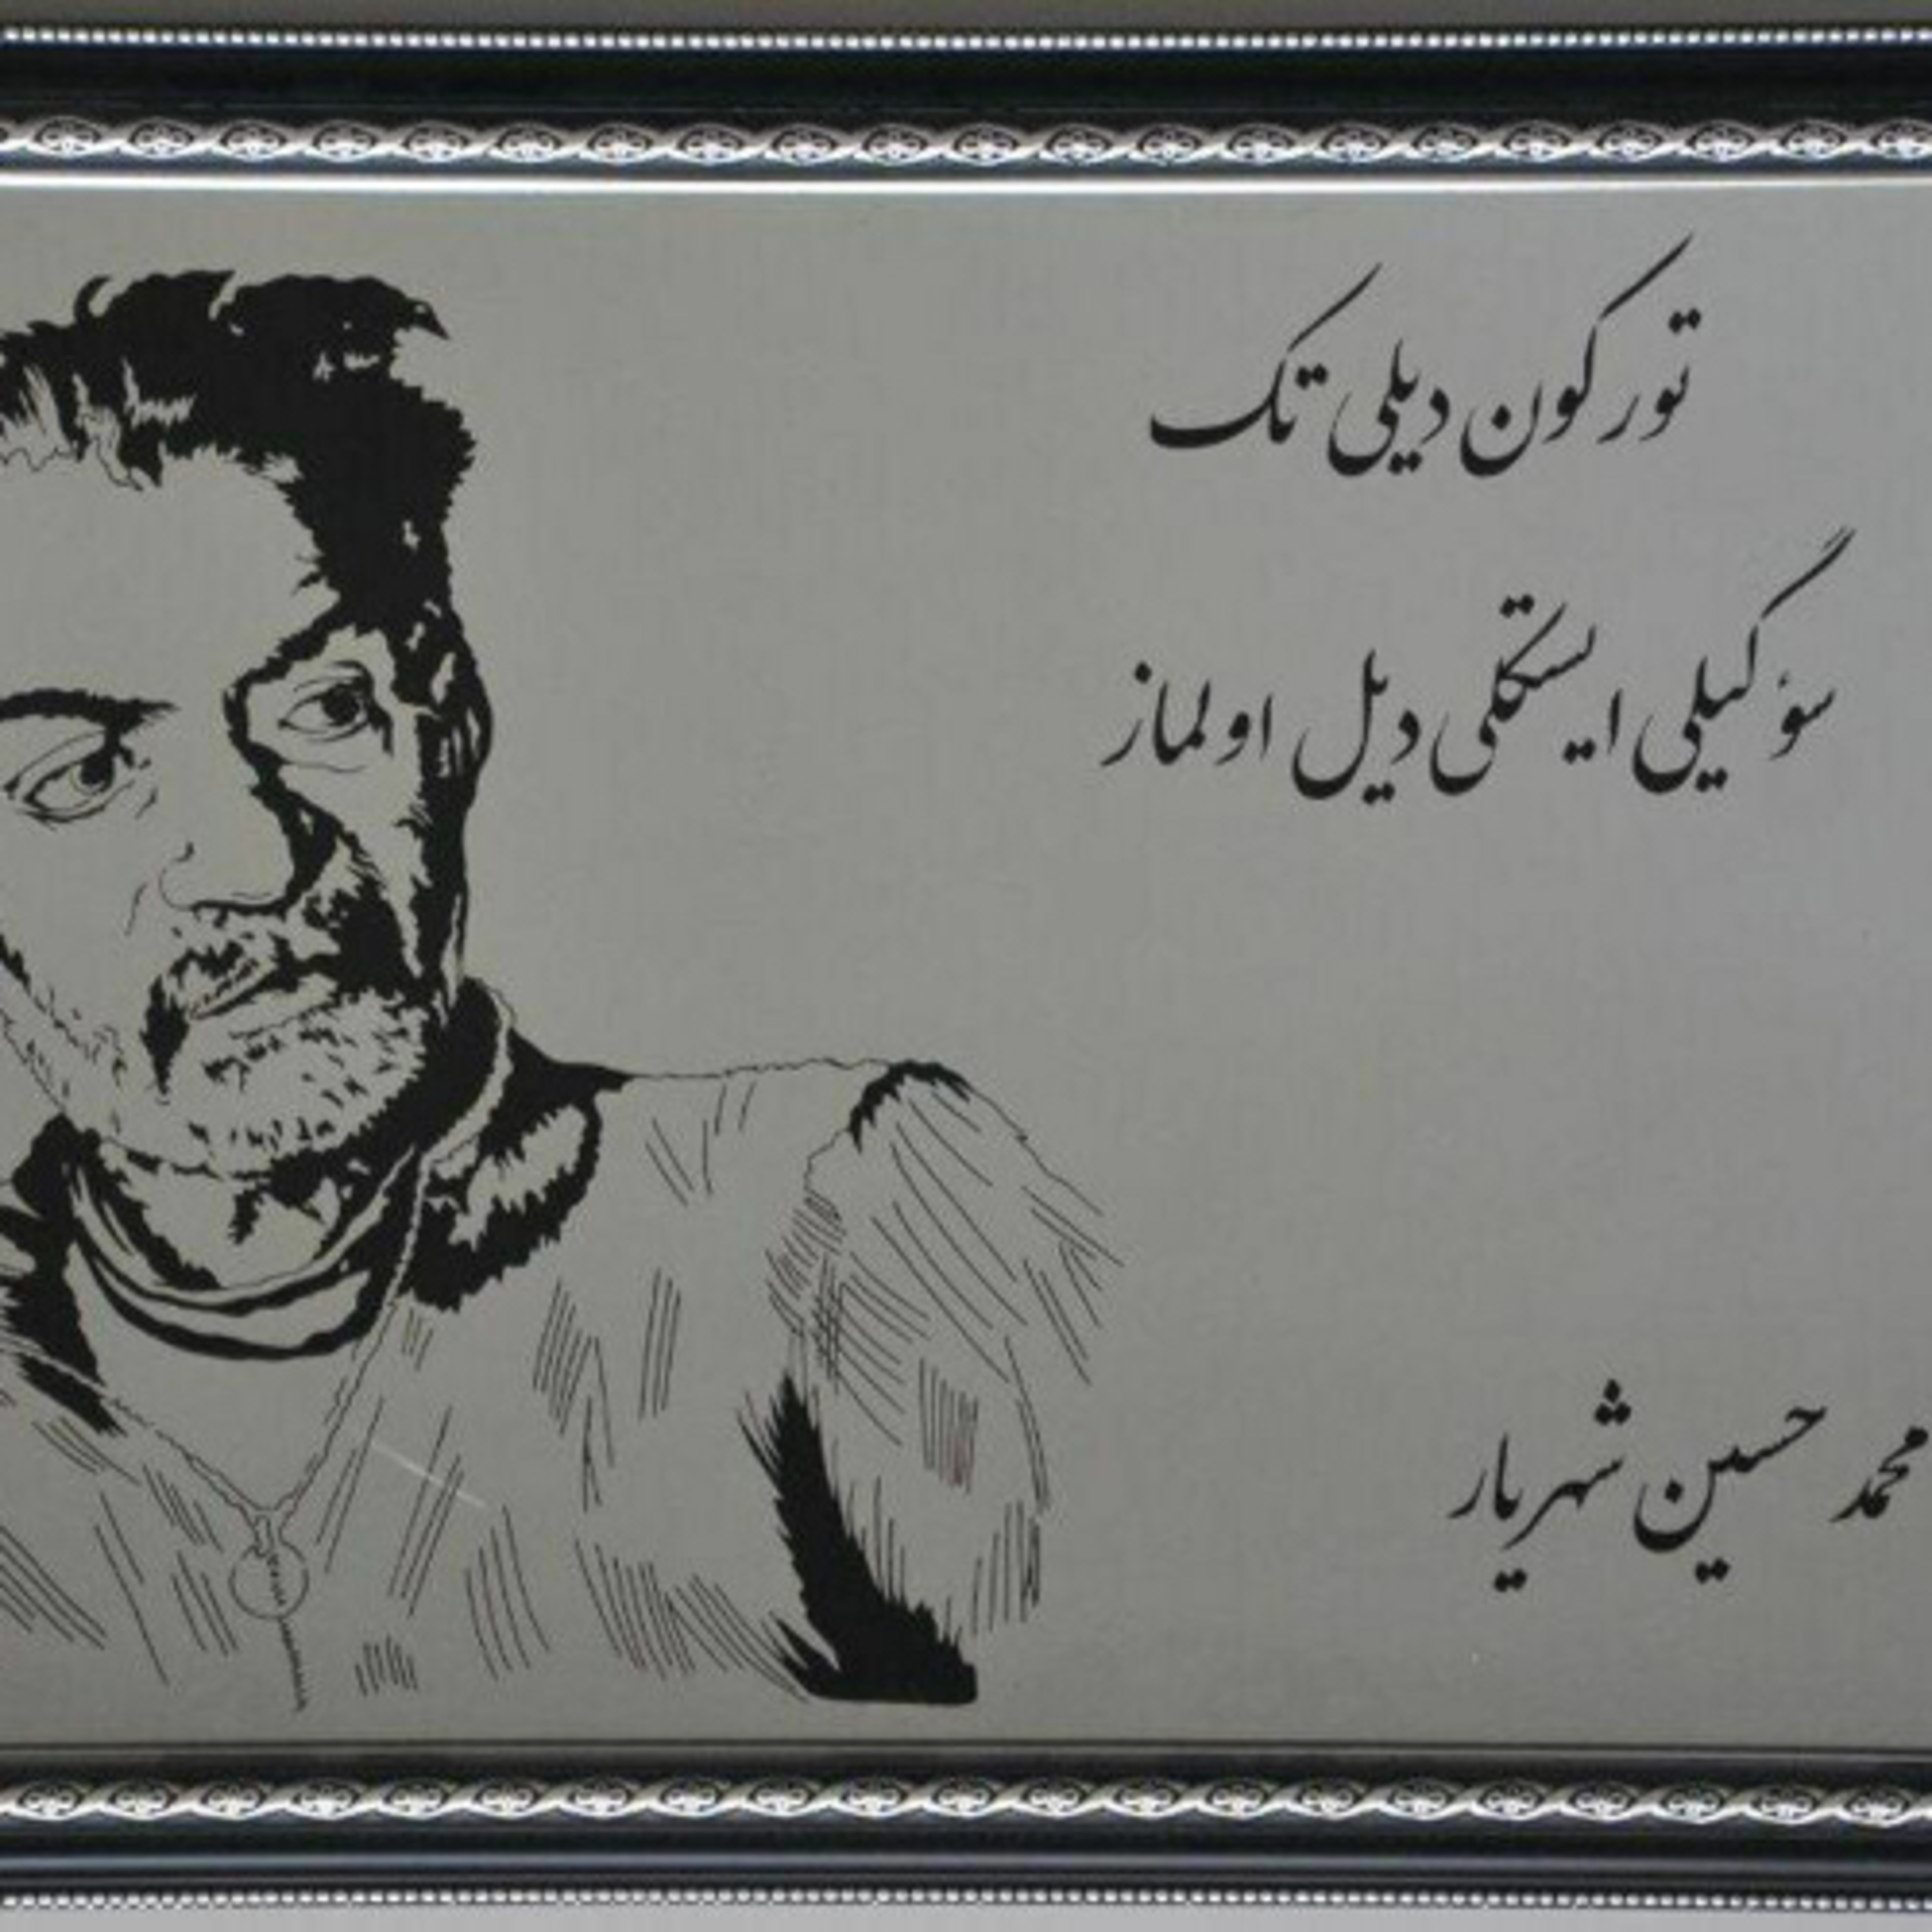 تورکون دیلی تک
سؤگیلی ایستکلی دیل اولماز
محمد حسین شهریار